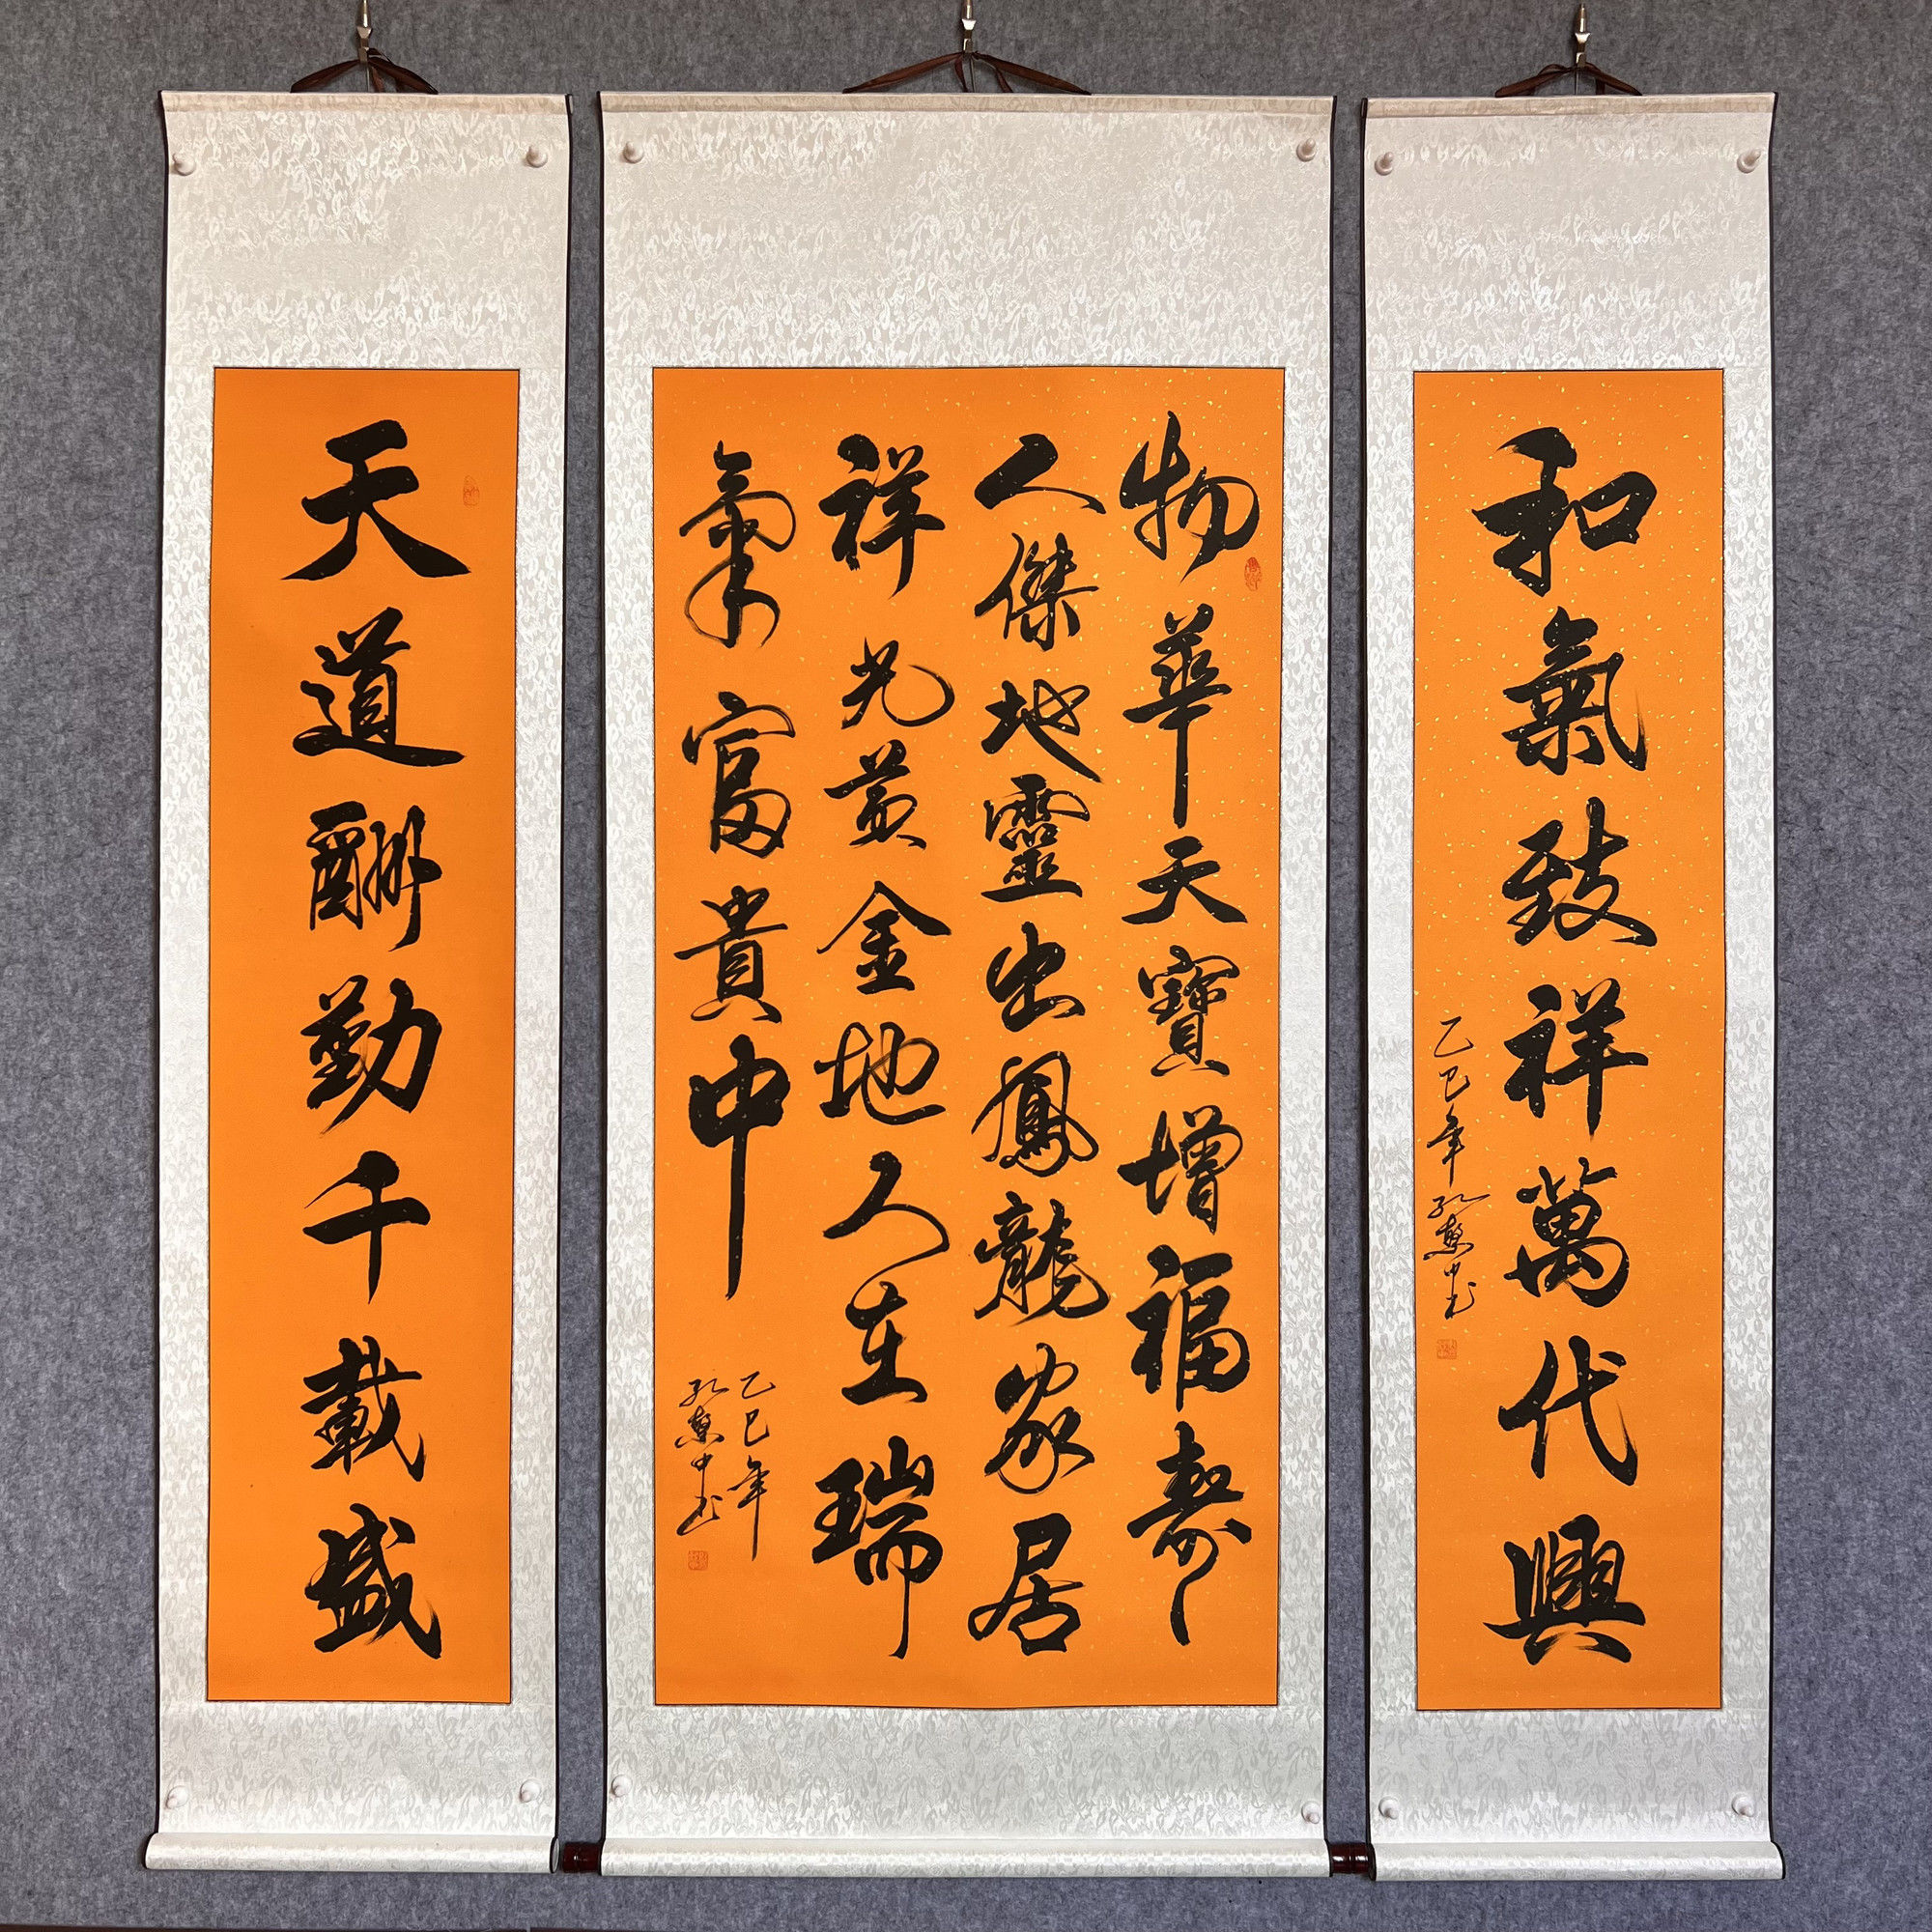 和氣致祥萬代興
乙巳年孔憲中书
物華天寶增福壽
人傑地靈出鳳龍家居
祥光黃金地人在瑞
氣富貴中
乙巳年
孔憲中书
天道酬勤千載盛